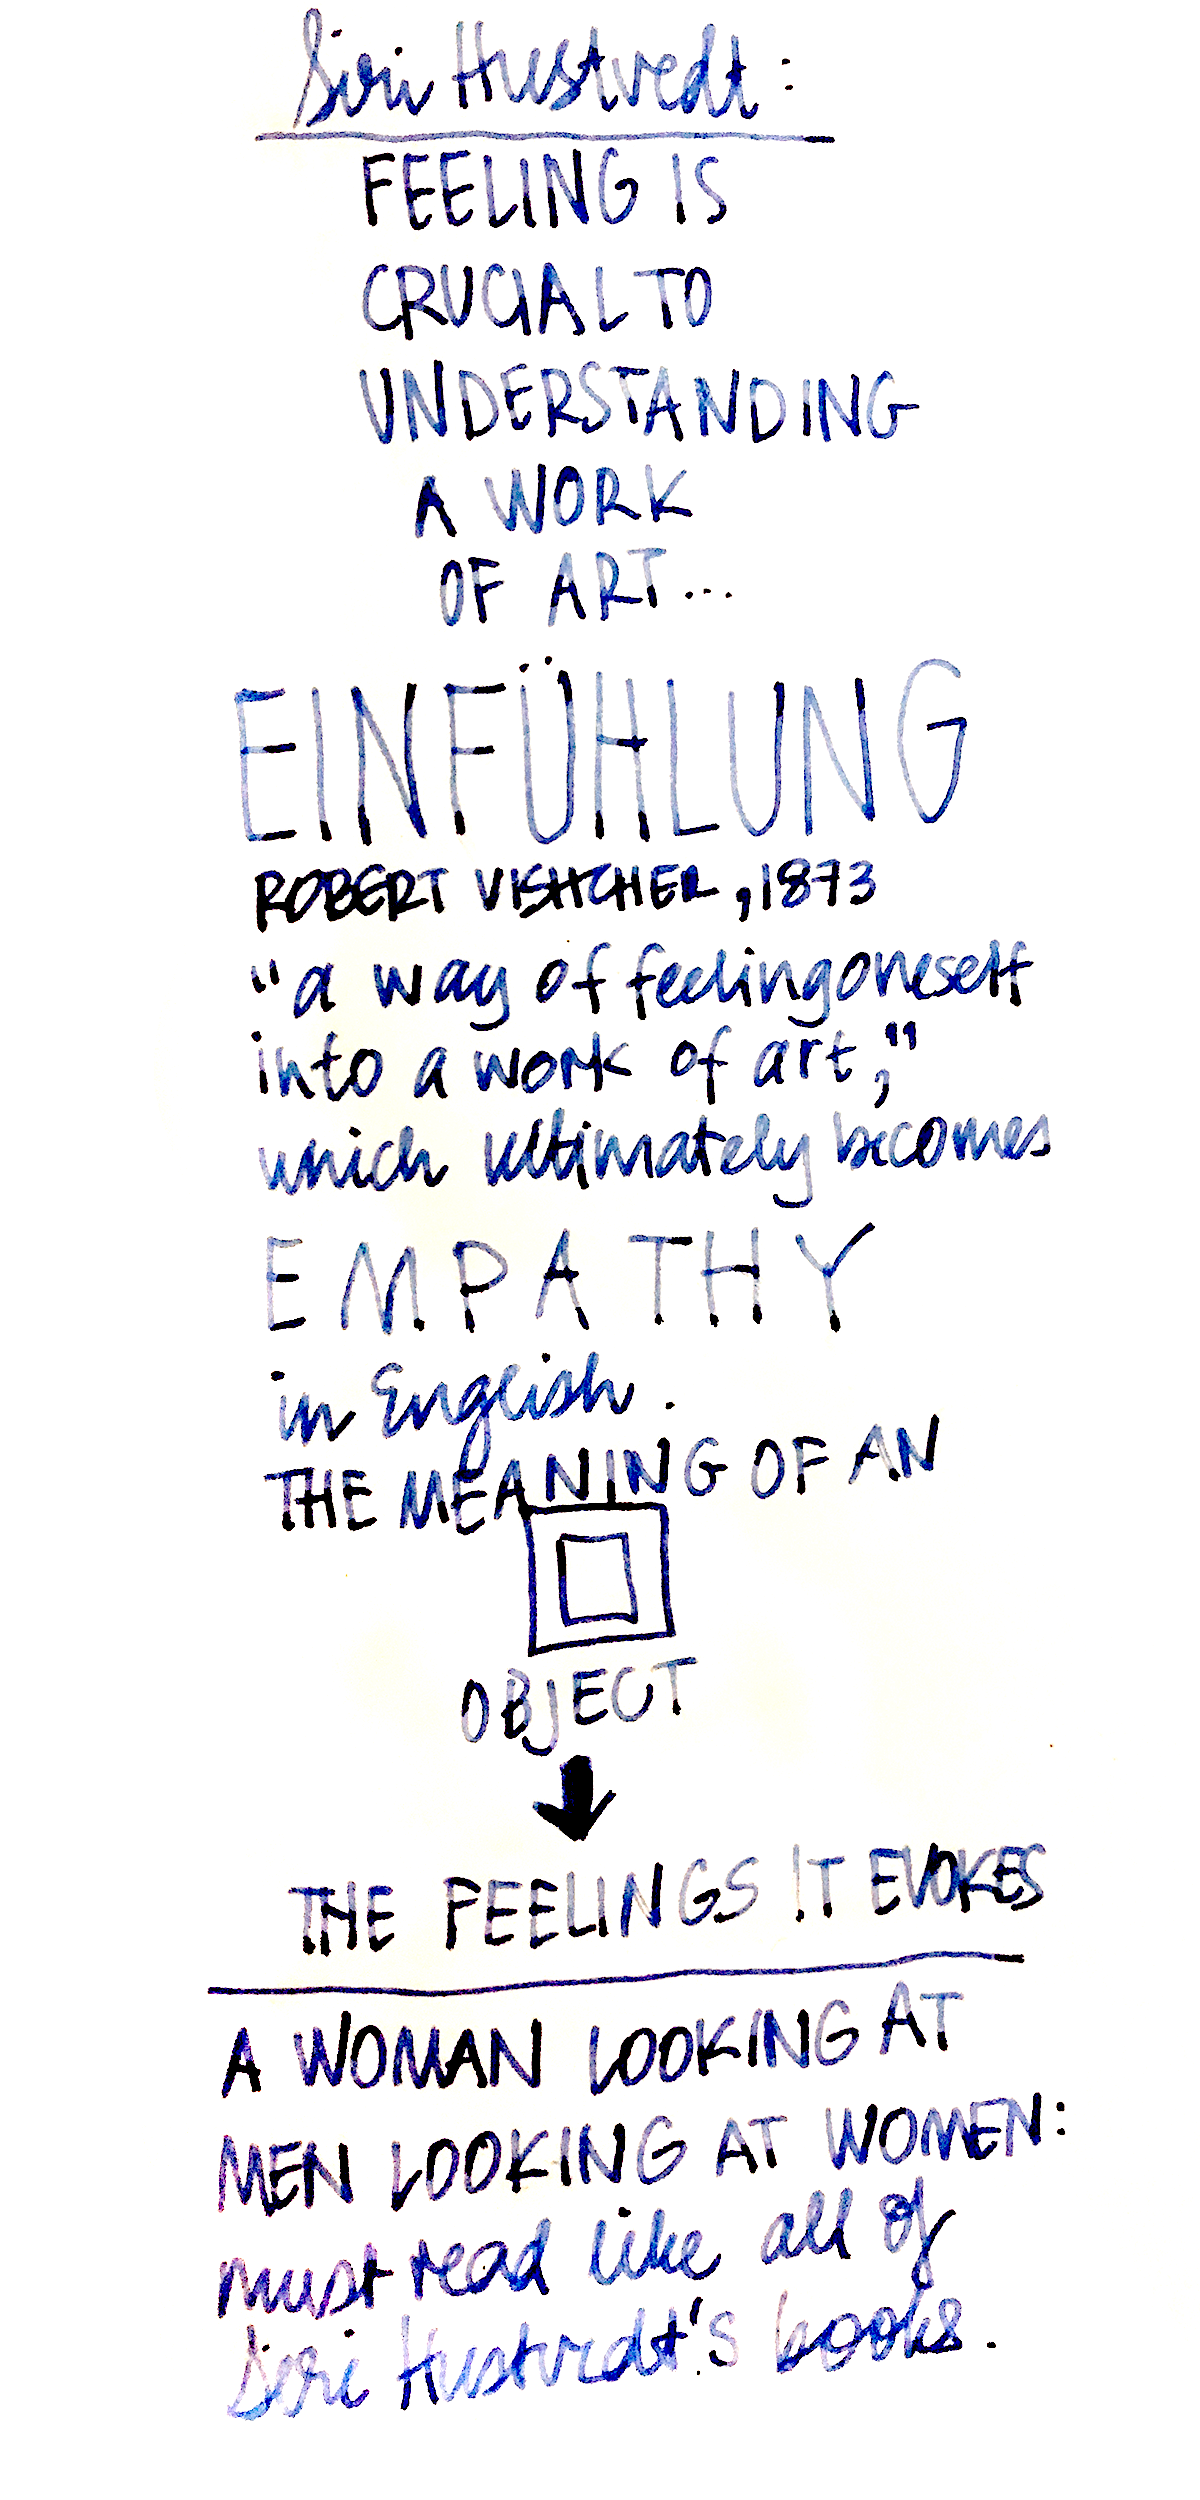 Siri Hustvedt:
FEELING IS
CRUCIAL TO
UNDERSTANDING
A WORK
OF ART...
EINFÜHLUNG
ROBERT VISHCHER, 1873
"a way of feeling oneself
into a work of art,"
which ultimately becomes
EMPATHY
in English.
THE MEANING OF AN
OBJECT
THE FEELINGS IT EVOKES
A WOMAN LOOKING AT
MEN LOOKING AT WOMEN:
must read like all of
Siri Hustvedt's books.